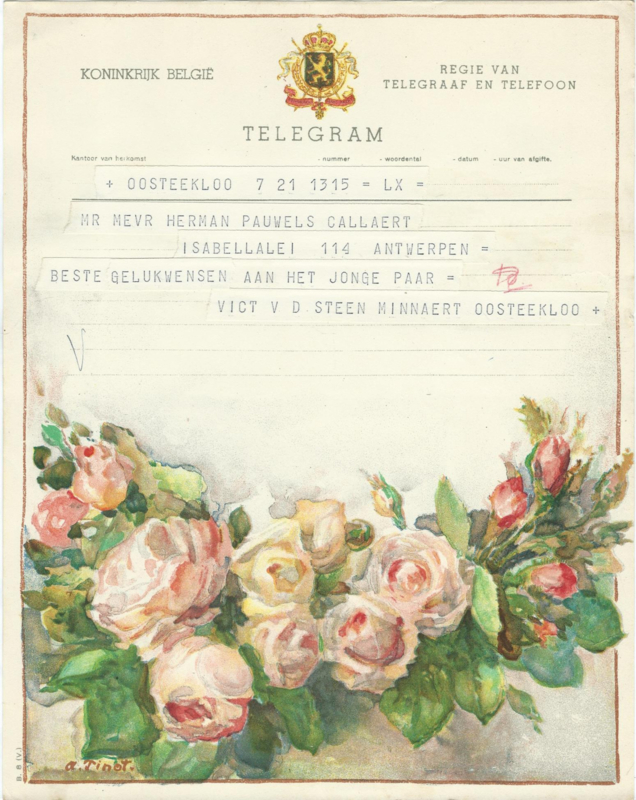 KONINKRIJK BELGIË
REGIE VAN
TELEGRAAF EN TELEFOON
TELEGRAM
Kantoor van herkomst - nummer - woordental - datum - uur van afgifte.
+ OOSTEEKLOO 7 21 1315 = LX =
MR MEVR HERMAN PAUWELS CALLAERT
ISABELLALEI 114 ANTWERPEN =
BESTE GELUKWENSEN AAN HET JONGE PAAR =
VICT V D STEEN MINNAERT OOSTEEKLOO +
V
B. 8 (V.)